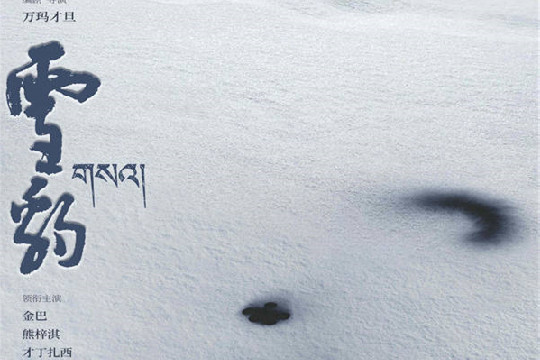 编剧 导演
万玛才旦
雪豹
གསའ།
领衔主演
金巴
熊梓淇
才丁扎西